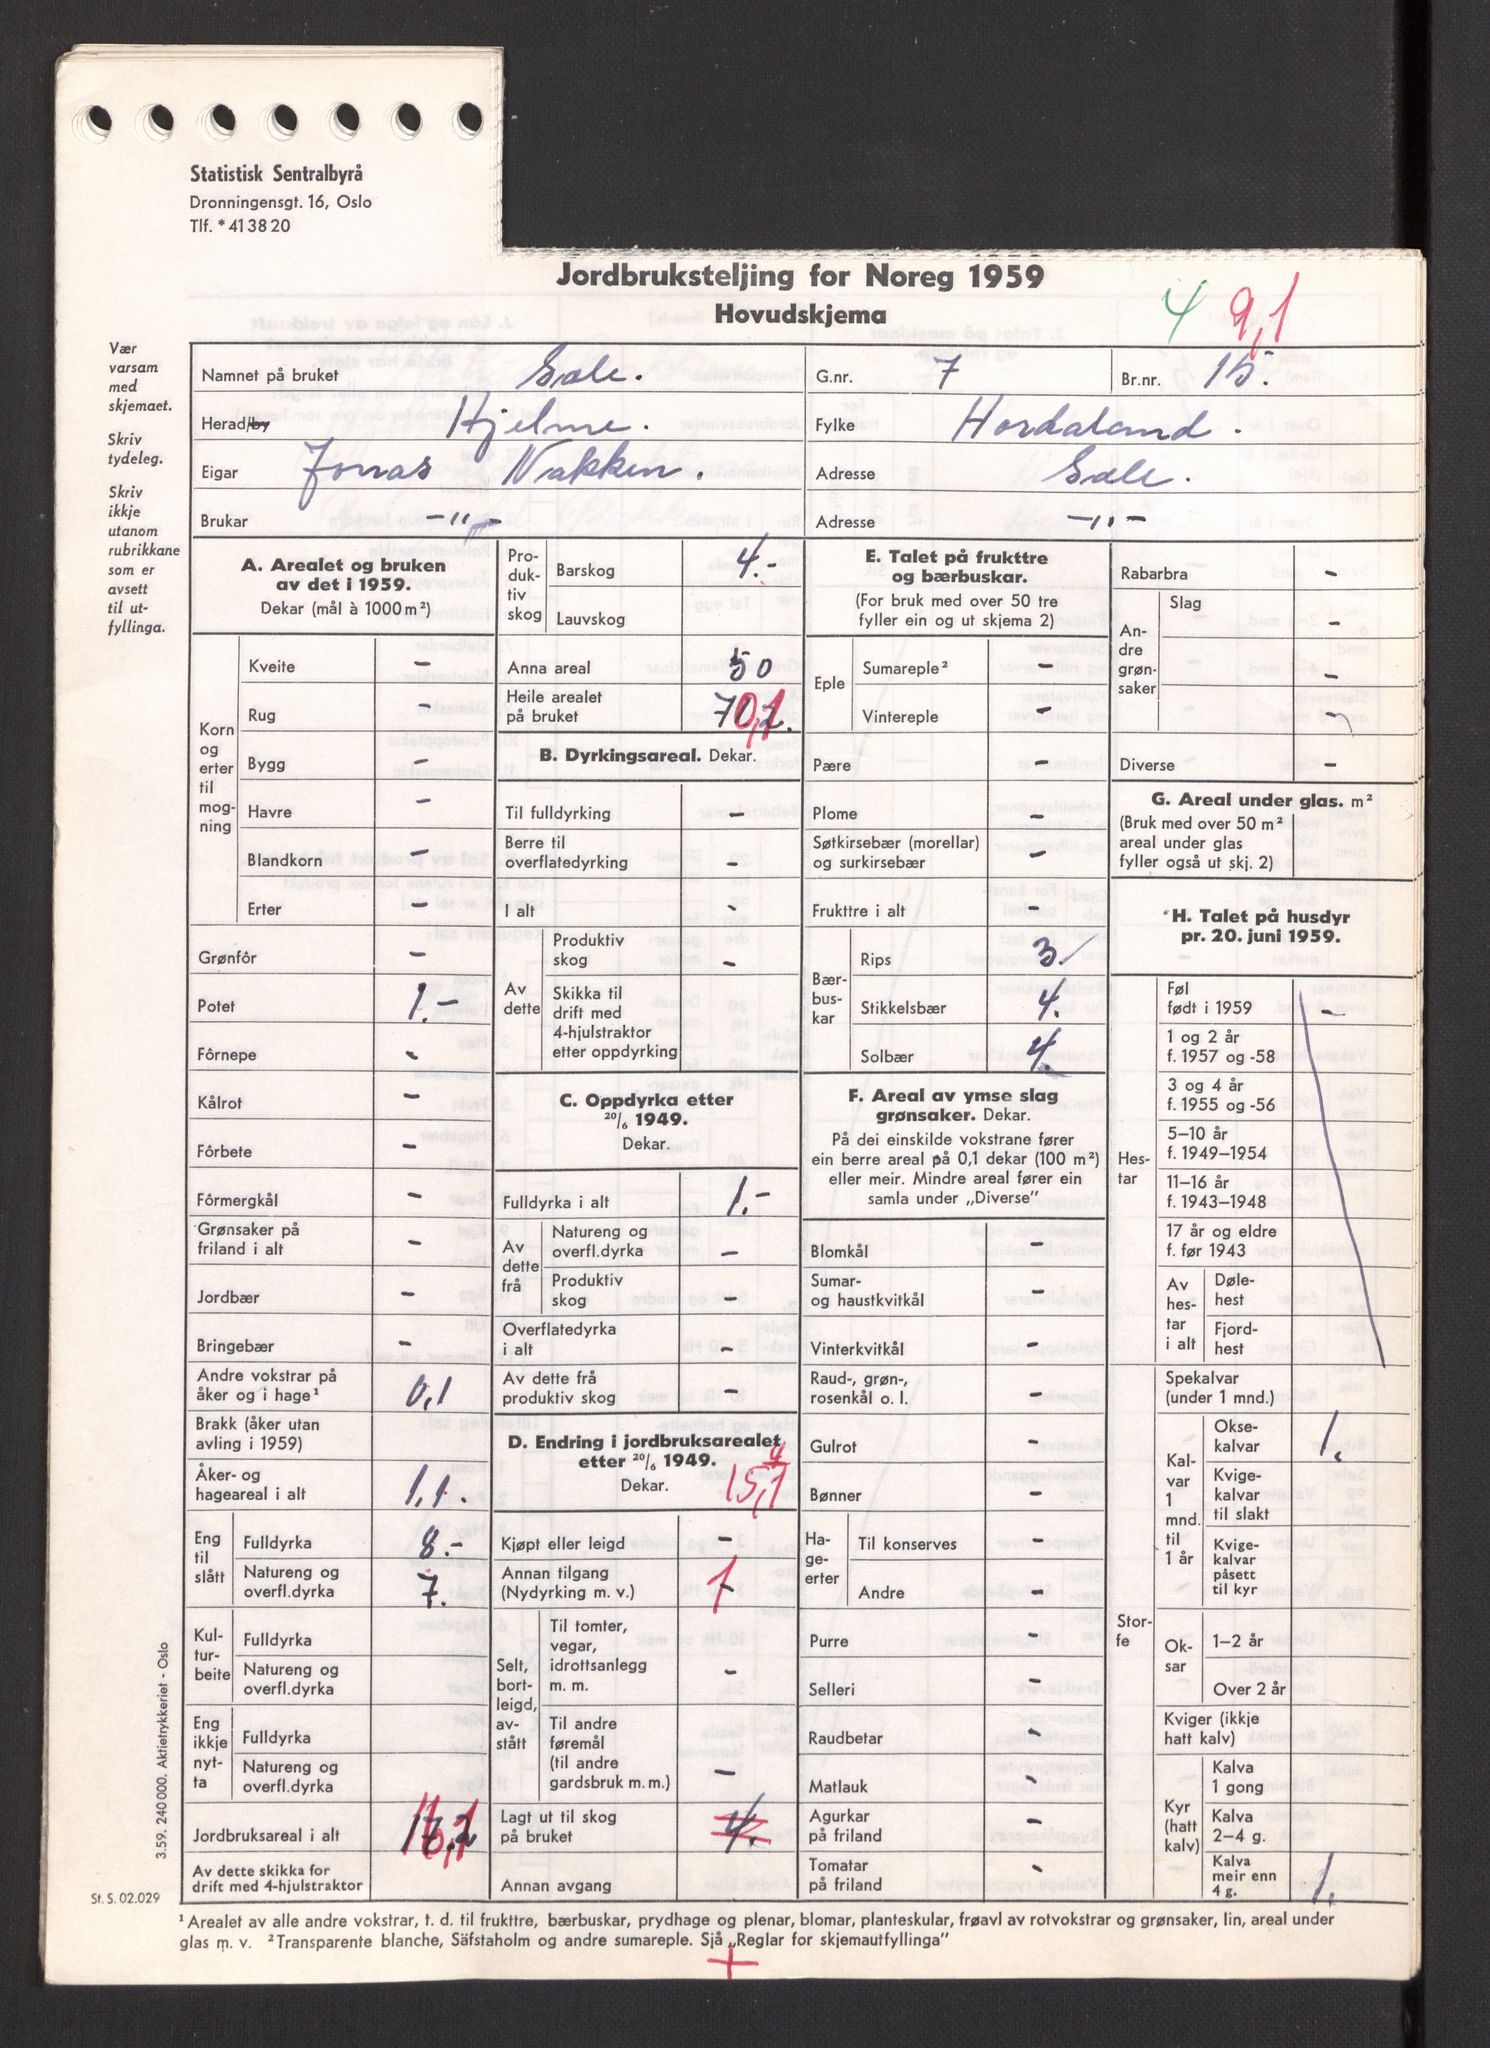 Statistisk Sentralbyrå
Dronningensgt. 16, Oslo
Tlf. *41 38 20
Jordbruksteljing for Noreg 1959
Hovudskjema
4 9,1
Vær
varsam
med
skjemaet.
Skriv
tydeleg.
Skriv
ikkje
utanom
rubrikkane
som er
avsett
til ut-
fyllinga.
Namnet på bruket Sæle. G.nr. 7 Br.nr. 15.
Herad/by Hjelme. Fylke Hordaland.
Eigar Jonas Nakken. Adresse Sæle.
Brukar -"- Adresse -"-
A. Arealet og bruken
av det i 1959.
Dekar (mål à 1000 m²)
Korn
og
erter
til
mog-
ning
Kveite -
Rug -
Bygg -
Havre -
Blandkorn -
Erter -
Grønfôr -
Potet 1.-
Fôrnepe -
Kålrot -
Fôrbete -
Fôrmergkål -
Grønsaker på
friland i alt -
Jordbær -
Bringebær -
Andre vokstrar på
åker og i hage¹ 0,1
Brakk (åker utan
avling i 1959)
Åker- og
hageareal i alt 1,1.
Eng
til
slått
Fulldyrka 8.-
Natureng og
overfl.dyrka 7.
Kul-
tur-
beite
Fulldyrka
Natureng og
overfl.dyrka
Eng
ikkje
nyt-
ta
Fulldyrka
Natureng og
overfl.dyrka
Jordbruksareal i alt 16,1
Av dette skikka for
drift med 4-hjulstraktor
Pro-
duk-
tiv
skog
Barskog 4.-
Lauvskog
Anna areal 50
Heile arealet
på bruket 70,1
B. Dyrkingsareal. Dekar.
Til fulldyrking -
Berre til
overflatedyrking -
I alt -
Av
dette
Produktiv
skog -
Skikka til
drift med
4-hjulstraktor
etter oppdyrking
C. Oppdyrka etter
20/6 1949.
Dekar.
Fulldyrka i alt 1.-
Av
dette
frå
Natureng og
overfl.dyrka -
Produktiv
skog -
Overflatedyrka
i alt -
Av dette frå
produktiv skog -
D. Endring i jordbruksarealet
etter 20/6 1949.
Dekar. 15,1
4
Kjøpt eller leigd -
Annan tilgang
(Nydyrking m. v.) 1
Selt,
bort-
leigd,
av-
stått
Til tomter,
vegar,
idrottsanlegg
m. m. -
Til andre
føremål
(til andre
gardsbruk m.m.) -
Lagt ut til skog
på bruket 4.
Annan avgang
E. Talet på frukttre
og bærbuskar.
(For bruk med over 50 tre
fyller ein og ut skjema 2)
Eple
Sumareple² -
Vintereple -
Pære -
Plome -
Søtkirsebær (morellar)
og surkirsebær -
Frukttre i alt -
Bær-
bus-
kar
Rips 3.
Stikkelsbær 4.
Solbær 4.
F. Areal av ymse slag
grønsaker. Dekar.
På dei einskilde vokstrane fører
ein berre areal på 0,1 dekar (100 m²)
eller meir. Mindre areal fører ein
samla under „Diverse"
Blomkål -
Sumar-
og haustkvitkål -
Vinterkvitkål -
Raud-, grøn-,
rosenkål o. l. -
Gulrot -
Bønner -
Ha-
ge-
erter
Til konserves -
Andre -
Purre -
Selleri -
Raudbetar -
Matlauk -
Agurkar
på friland -
Tomatar
på friland -
Rabarbra -
An-
dre
grøn-
saker
Slag
-
-
-
Diverse -
G. Areal under glas. m²
(Bruk med over 50 m²
areal under glas
fyller også ut skj. 2)
H. Talet på husdyr
pr. 20. juni 1959.
Hes-
tar
Føl
født i 1959 -
1 og 2 år
f. 1957 og -58
3 og 4 år
f. 1955 og -56
5–10 år
f. 1949–1954
11–16 år
f. 1943–1948
17 år og eldre
f. før 1943
Av
hes-
tar
i alt
Døle-
hest
Fjord-
hest
Stor-
fe
Spekalvar
(under 1 mnd.)
Kal-
var
1
mnd.
til
1 år
Okse-
kalvar 1.
Kvige-
kalvar
til slakt
Kvige-
kalvar
påsett
til kyr
Ok-
sar
1–2 år
Over 2 år
Kviger (ikkje
hatt kalv)
Kyr
(hatt
kalv)
Kalva
1 gong
Kalva
2–4 g.
Kalva
meir enn
4 g. 1.
3.59. 240 000. Aktietrykkeriet - Oslo
St. S. 02.029
¹ Arealet av alle andre vokstrar, t. d. til frukttre, bærbuskar, prydhage og plenar, blomar, planteskular, frøavl av rotvokstrar og grønsaker, lin, areal under
glas m. v. ² Transparente blanche, Säfstaholm og andre sumareple. Sjå „Reglar for skjemautfyllinga"
+